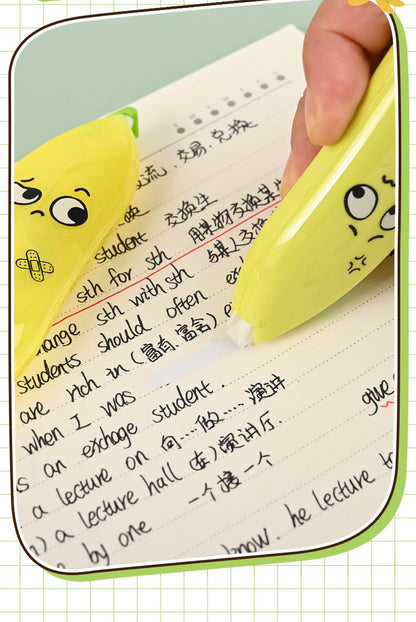 交流,交易,兑换
student 交换生
sth for sth 用某物交换某
change sth with sth 与某人交换
students should often
are rich in (富有,富含)
when I was
s an exchage student.
a lecture on 向…做……演讲
) a lecture hall (在)演讲厅. give
by one 一个接一个
know. he lecture